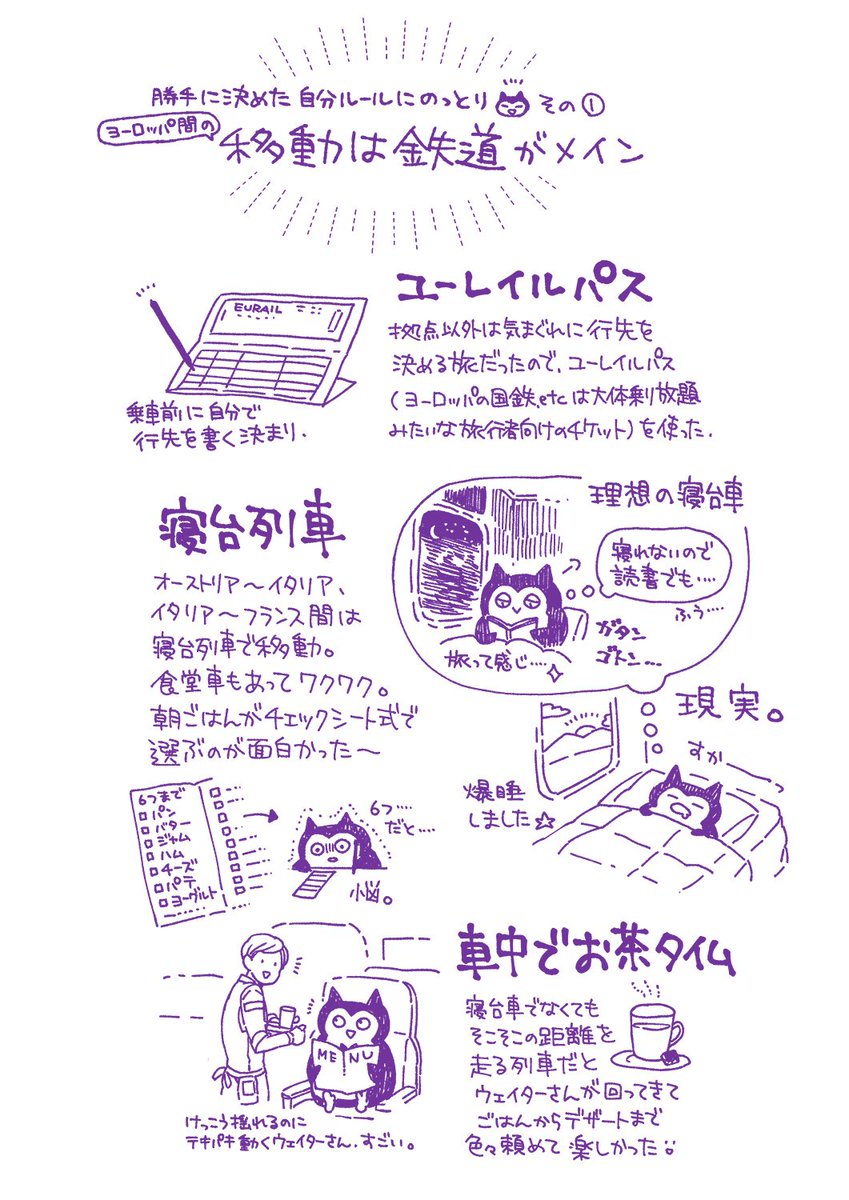 勝手に決めた自分ルールにのっとり その①
ヨーロッパ間の
移動は鉄道がメイン
ユーレイルパス
EURAIL
拠点以外は気まぐれに行先を
決める旅だったので、ユーレイルパス
(ヨーロッパの国鉄.etcは大体乗り放題
みたいな旅行者向けのチケット)を使った.
乗車前に自分で
行先を書く決まり.
寝台列車
オーストリア〜イタリア、
イタリア〜フランス間は
寝台列車で移動。
食堂車もあってワクワク。
朝ごはんがチェックシート式で
選ぶのが面白かった〜
理想の寝台車
寝れないので
読書でも‥‥
ふぅ‥‥
ガタン
ゴトン…
旅って感じ‥‥
現実。
すか
爆睡
しました☆
6つまで
パン
バター
ジャム
ハム
チーズ
パテ
ヨーグルト
6つ‥‥
だと‥‥
悩。
車中でお茶タイム
寝台車でなくても
そこそこの距離を
走る列車だと
ウェイターさんが回ってきて
ごはんからデザートまで
色々頼めて楽しかった
MENU
けっこう揺れるのに
テキパキ動くウェイターさん、すごい。